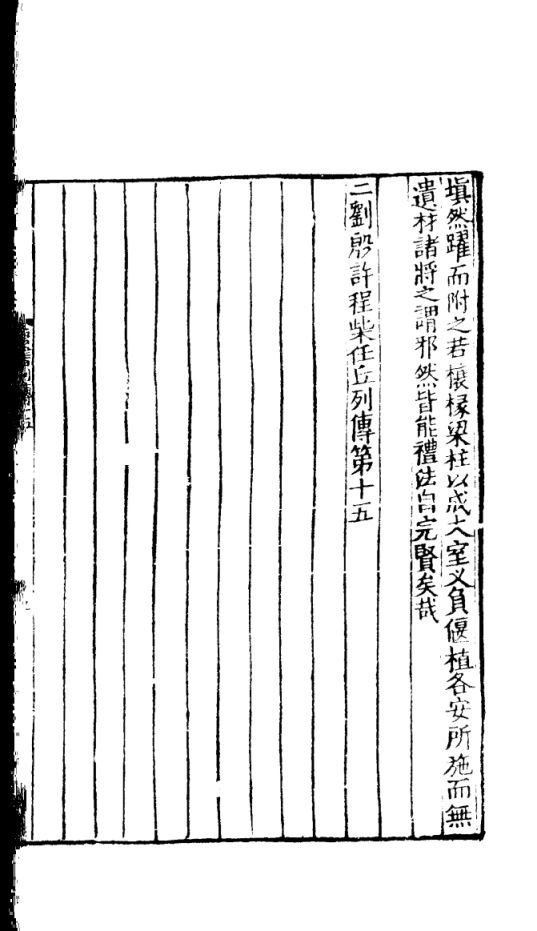 塡然躍而附之若榱椽梁柱以成大室义負偃植各安所施而無
遺材諸將之謂邪然皆能禮法自完賢矣哉
二劉殷許程柴任丘列傳第十五